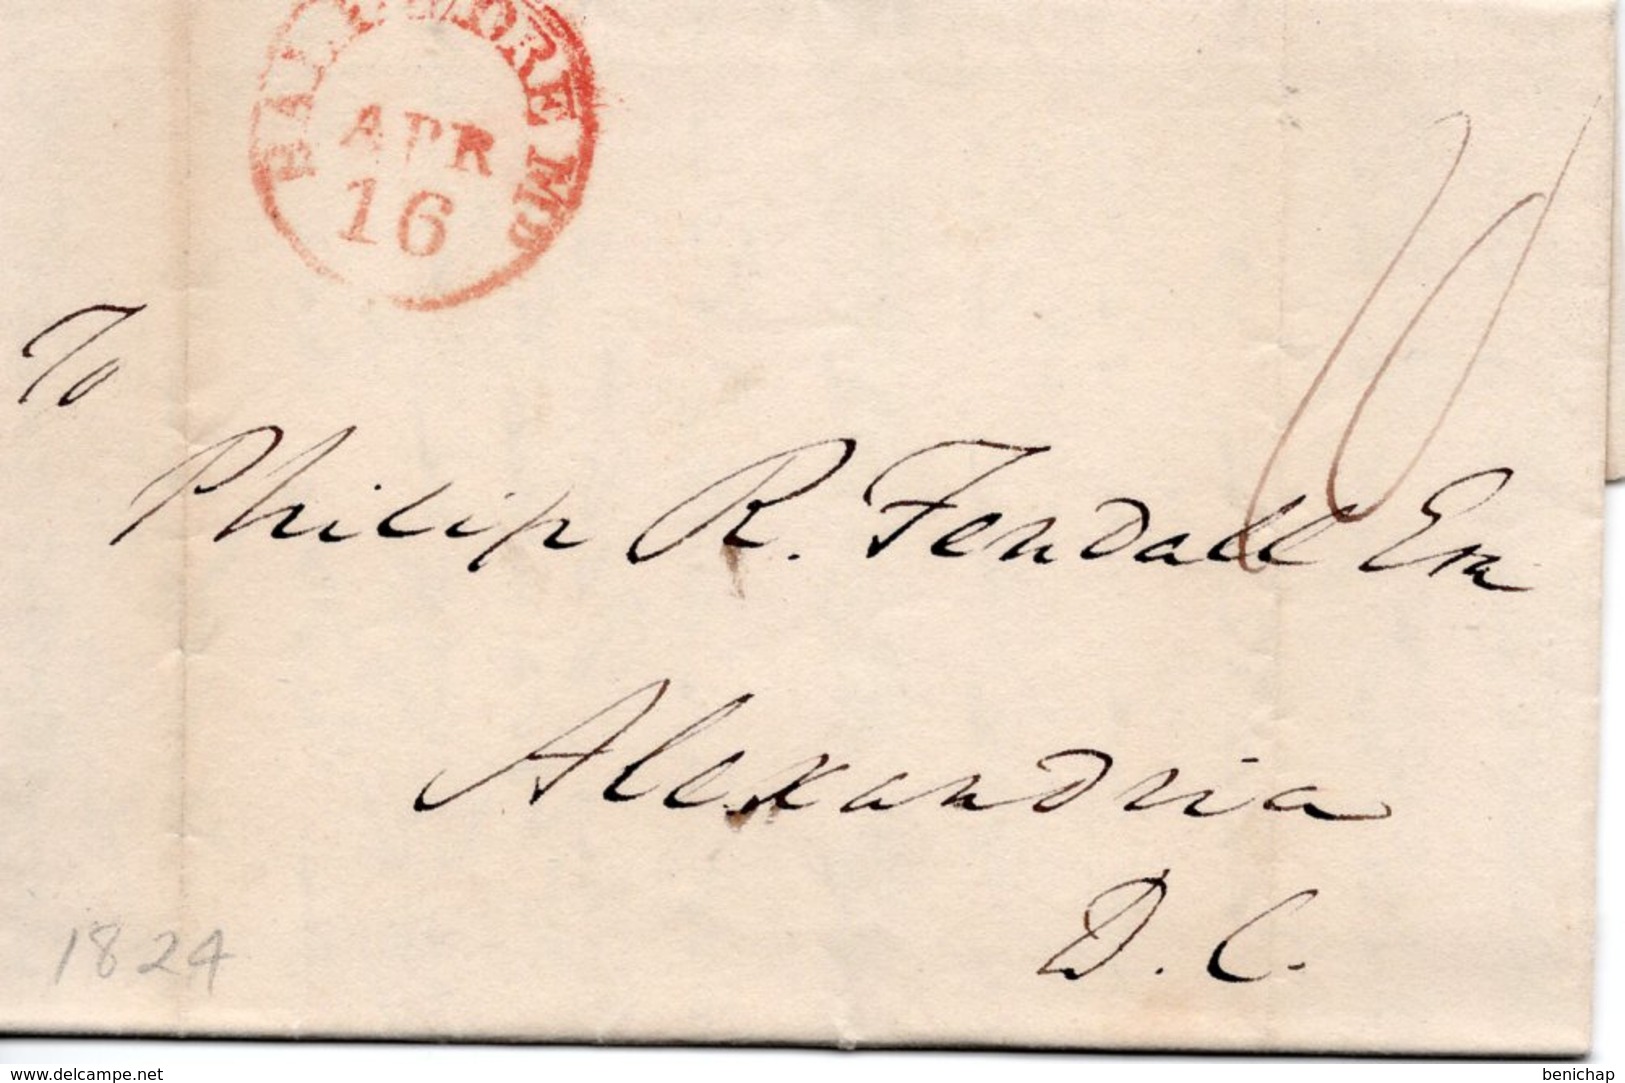 BALTIMORE MD
APR
16
10
To
Philip R. Fendall Esq
Alexandria
D. C.
1824
www.delcampe.net
benichap